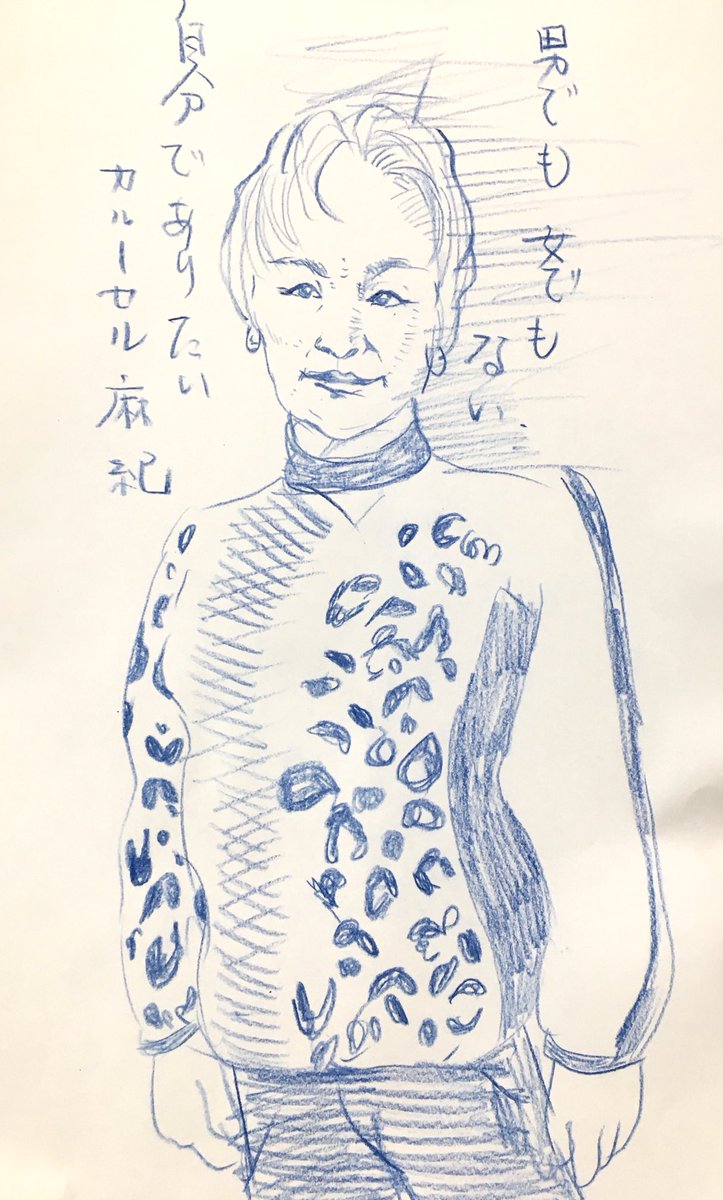 男でも女でも
ない、
自分でありたい
カルーセル麻紀